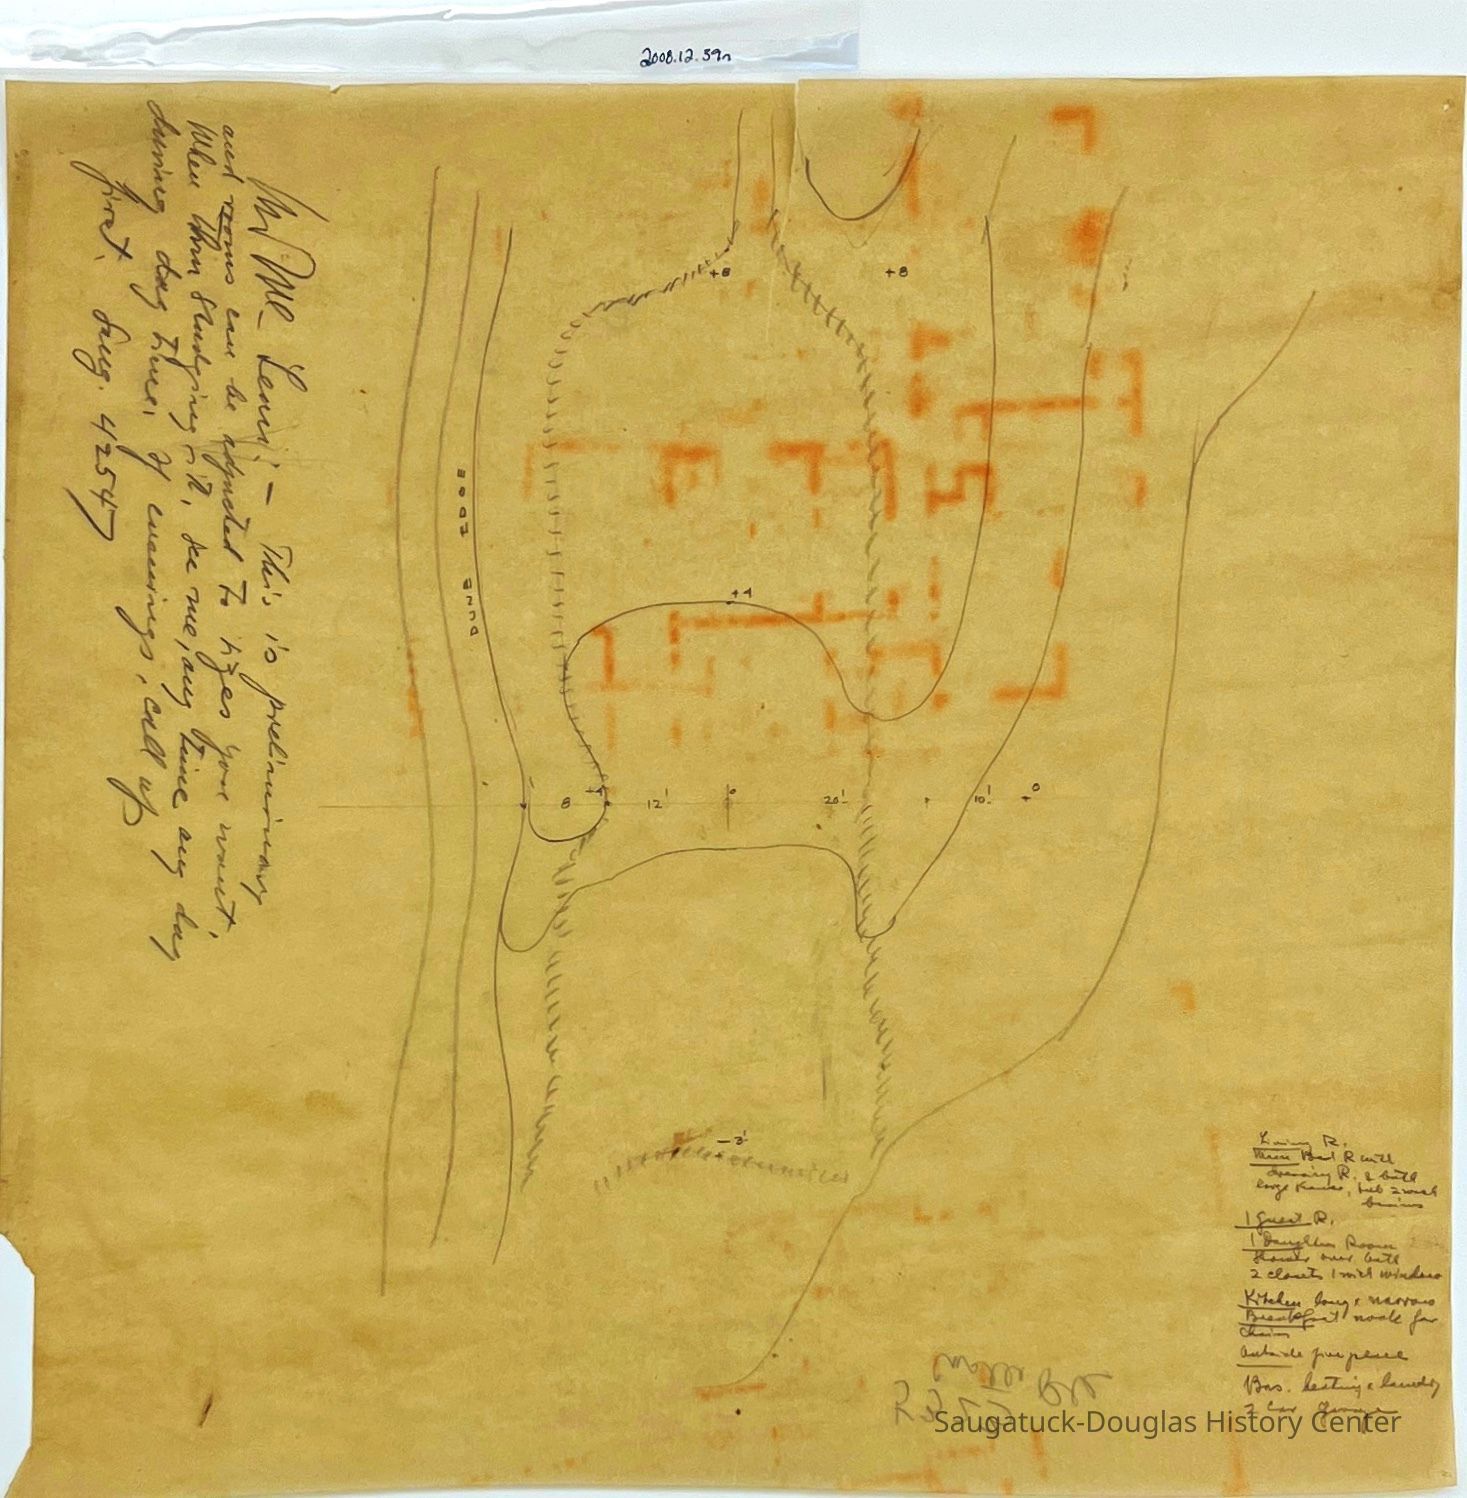 2008.12.39n
Mr Mc Lean: — This is preliminary
and rooms can be adjusted to sizes you want.
When thru studying it, see me, any time any day
during day time, if evenings, call up
first. Saug. 42547
+8
+8
DUNE EDGE
+4
8
+4
12'
0
20'
10'
+0
-3'
Living R.
Bed R with
Dressing R. & bath
large
1 Guest R.
1 Daughter Room
Shower over bath
2 closets 1 with window
Kitchen long & narrow
Breakfast nook for
Outside fireplace
Bas. heating & laundry
2 Car Garage
Saugatuck-Douglas History Center